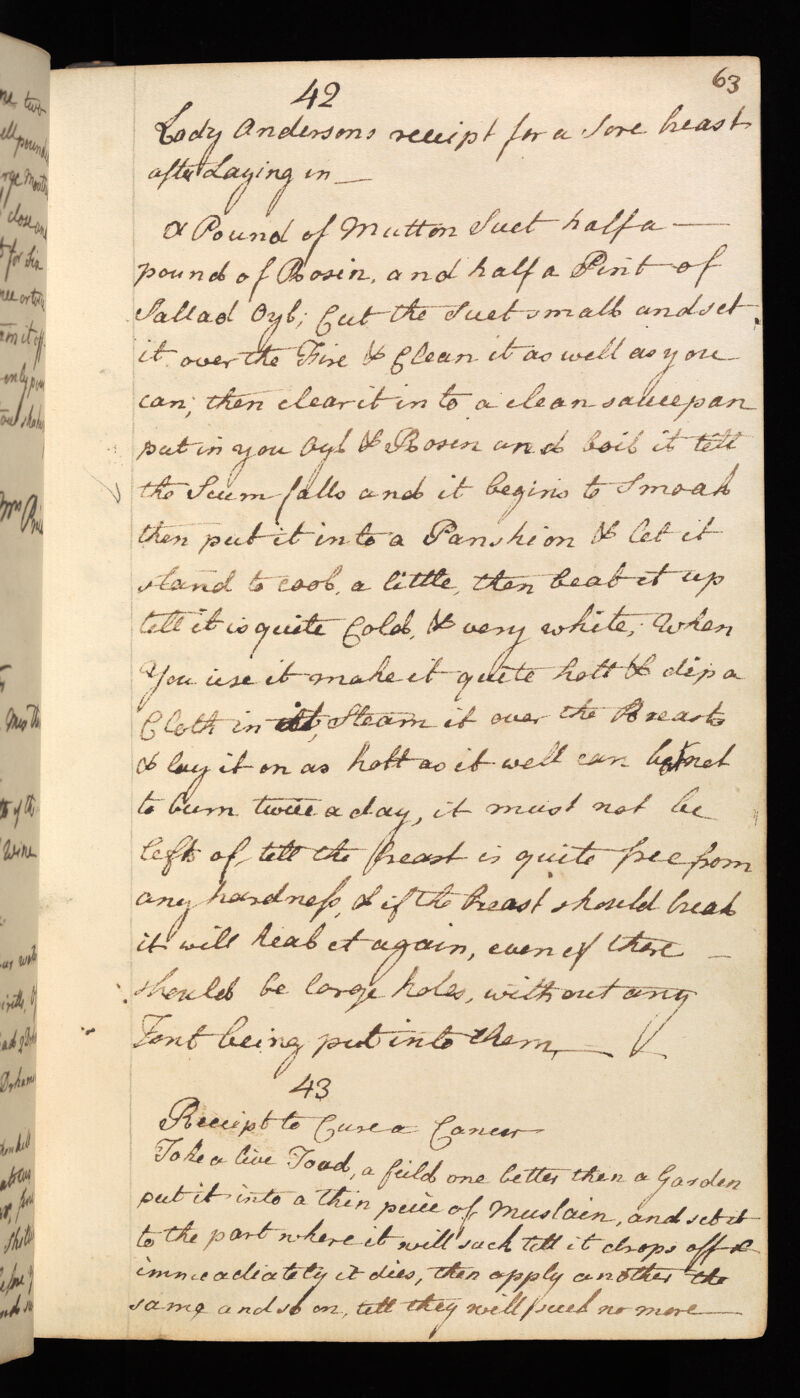 63
42
Lady Andersons receipt for a Sore breast
after Laying in
A Pound of Mutton Suet half a
pound of Rosin, and half a Pint of
Sallad Oyl; Cut the Suet small and set
it over the Fire & Clean it as well as you
can; then clear it in to a clean saucepan
put in you Oyl & Rosin and boil it tell
the Scum falls and it begins to Smoak
then put it into a Panshion & let it
stand to cool, a little, then beat it up
tell it is quite Cold, & very white; When
You use it make it quite hott & dip a
Cloth in it, Steam it over the Breast
& lay it on as hott as it well can but not
to burn twice a day, it must not be
left of, tell the breast is quite free from
any hardness, & if the breast should break
it will heal it again, even if there
should be large holes, without any
Tent being put into them,
43
Receipt to Cure a Cancer
Take a live Toad, a feild one better then a Garden
put it into a thin peice of Muslain, and set it
to the part where it will suck tell it drops off &
immeadiately it dies, then apply another the
same and so on, tell they will suck no more